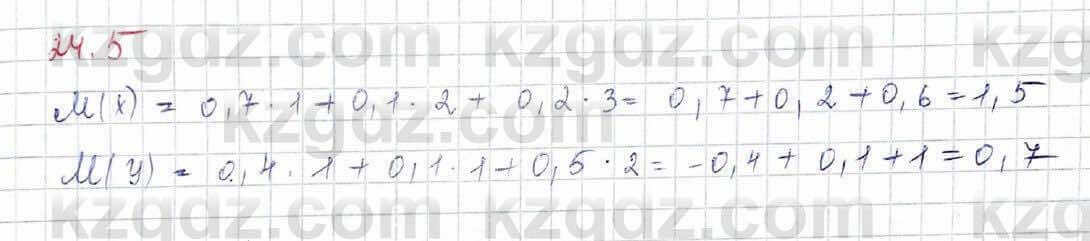 24.5
M(x) = 0,7 · 1 + 0,1 · 2 + 0,2 · 3 = 0,7 + 0,2 + 0,6 = 1,5
M(y) = 0,4 · 1 + 0,1 · 1 + 0,5 · 2 = -0,4 + 0,1 + 1 = 0,7
kzgdz.com kzgdz.com kzgdz.com
kzgdz.com kzgdz.com
kzgdz.com kzgdz.com kzgdz.com